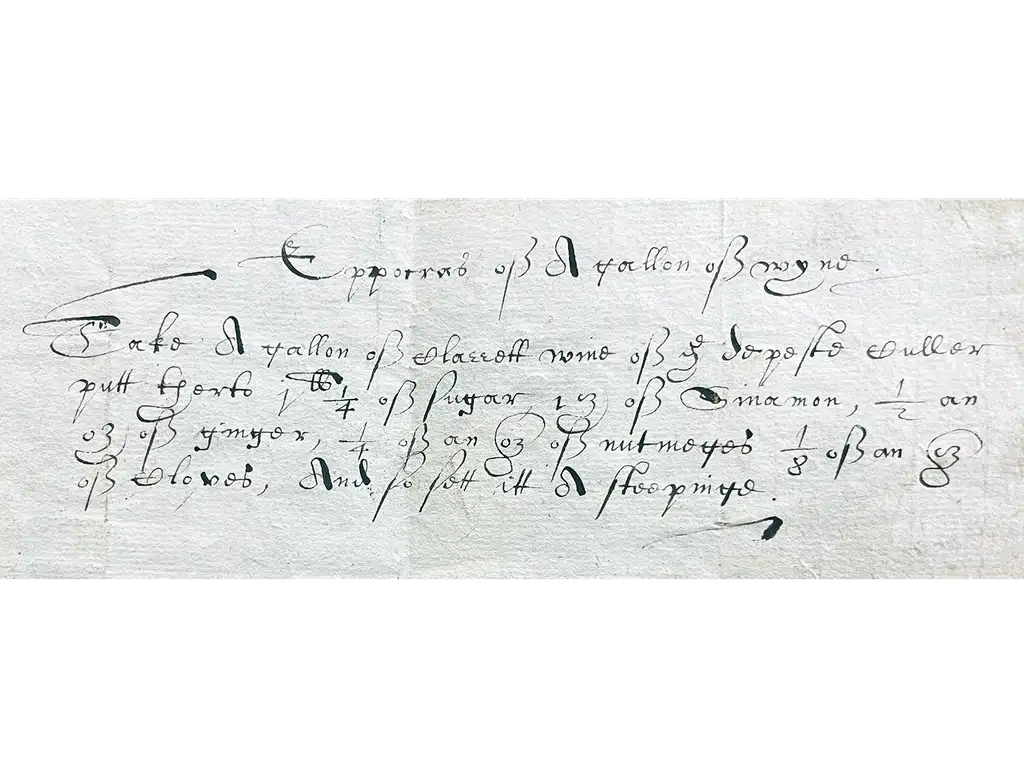 Eppocras off A gallon off wyne.
Take A gallon off Clarrett wine off ye depeste Culler
putt therto 1lb 1/4 off sugar, 1 oz off Sinamon, 1/2 an
oz off ginger, 1/4 off an oz off nutmeges 1/8 off an oz
off Cloves, And so sett itt A steepinge.